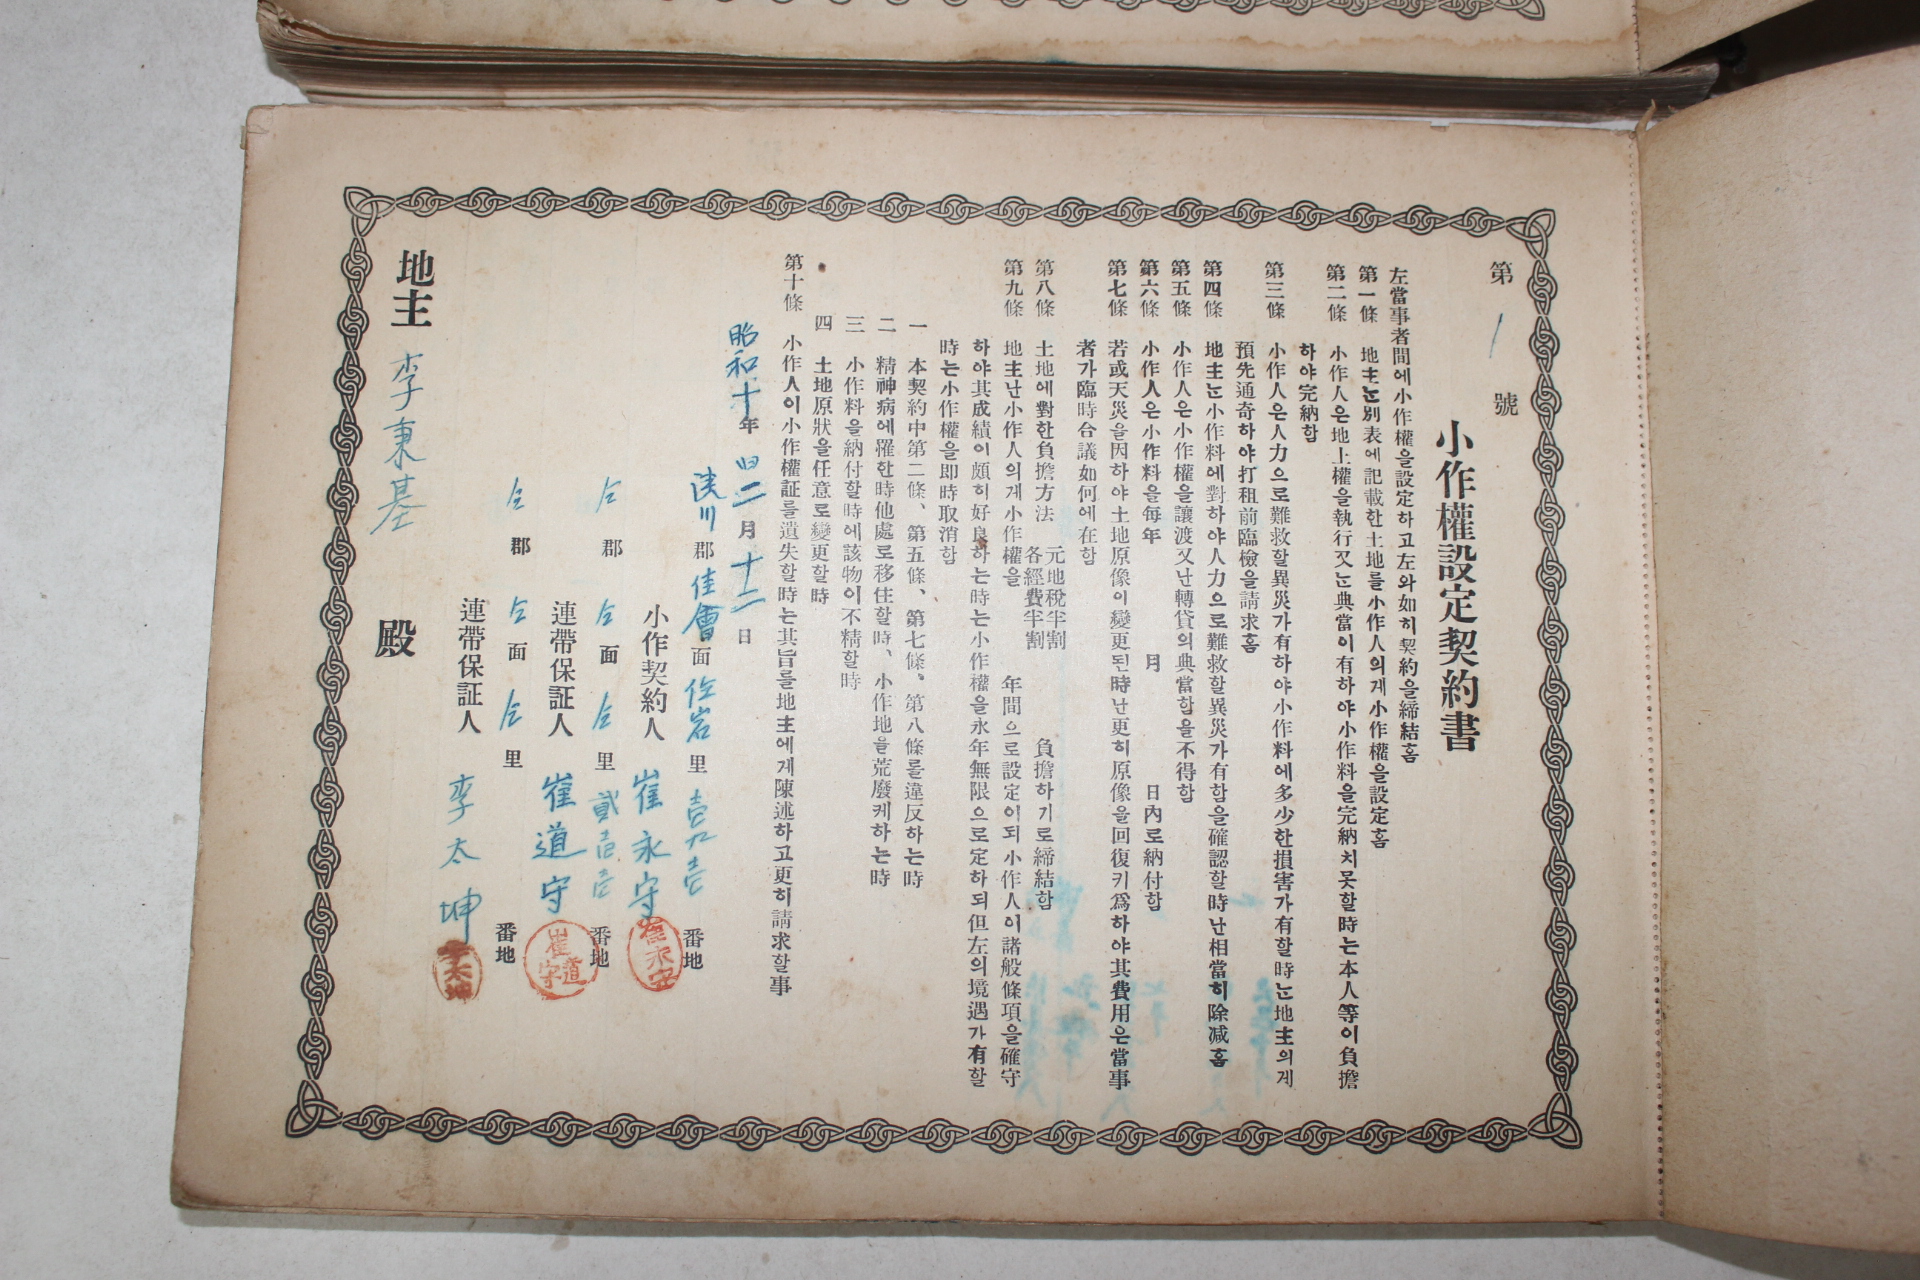 第 1 號
小作權設定契約書
左當事者間에小作權을設定하고左와如히契約을締結홈
第一條 地主는別表에記載한土地를小作人의게小作權을設定홈
第二條 小作人은地上權을執行又는典當이有하야小作料을完納치못할時는本人等이負擔
하야完納함
第三條 小作人은人力으로難救할異災가有하야小作料에多少한損害가有할時는地主의게
預先通奇하야打租前臨檢을請求홈
第四條 地主는小作料에對하야人力으로難救할異災가有함을確認할時난相當히除减홈
第五條 小作人은小作權을讓渡又난轉貸의典當함을不得함
第六條 小作人은小作料을每年 月 日內로納付함
第七條 若或天災을因하야土地原像이變更된時난更히原像을回復키爲하야其費用은當事
者가臨時合議如何에在함
第八條 土地에對한負擔方法 元地稅半割 各經費半割 負擔하기로締結함
第九條 地主난小作人의게小作權을 年間으로設定이되小作人이諸般條項을確守
하야其成績이頗히好良하는時는小作權을永年無限으로定하되但左의境遇가有할
時는小作權을即時取消함
一 本契約中第二條、第五條、第七條、第八條를違反하는時
二 精神病에羅한時他處로移住할時、小作地을荒廢케하는時
三 小作料을納付할時에該物이不精할時
四 土地原狀을任意로變更할時
第十條 小作人이小作權証를遺失할時는其旨를地主에게陳述하고更히請求할事
昭和十年 四二月 十二日
陜川郡 佳會面 佐岩里 壹九壹 番地
小作契約人 崔永守
仝郡 仝面 仝里 貳壹壹 番地
連帶保証人 崔道守
仝郡 仝面 仝里 番地
連帶保証人 李太坤
地主 李秉基 殿
崔永守
崔道守
李太坤